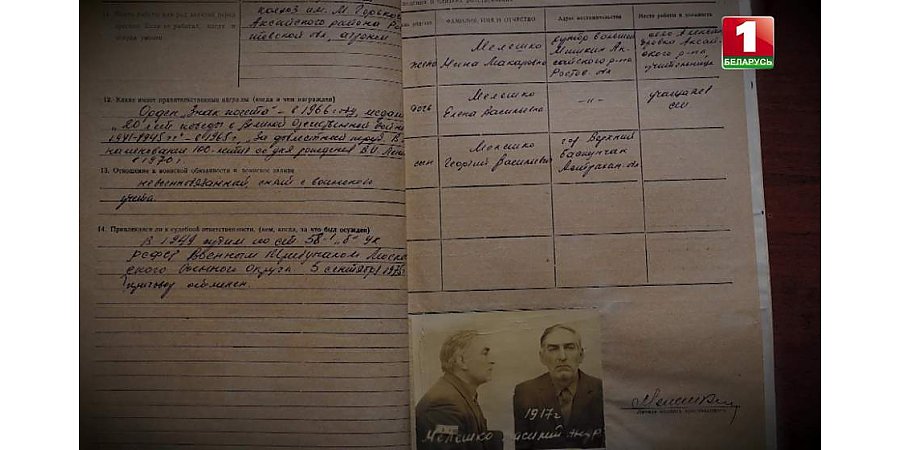 11. Место работы или род занятий перед
колхоз им. М. Горького
Аксайского района Ро-
стовской обл., агроном
12. Какие имеет правительственные награды (когда и чем награжден)
Орден „Знак почета" – в 1966 году, медали
„20 лет победы в Великой Отечественной войне
1941-1945 гг" – в 1965 г., „За доблестный труд. В
ознаменование 100-летия со дня рождения В.И. Лени
в 1970 г.
13. Отношение к воинской обязанности и воинское звание
невоеннообязанный, снят с воинского
учета.
14. Привлекался ли к судебной ответственности, (кем, когда, за что был осужден)
В 1949 судим по ст. 58-1 „б" УК
РСФСР Военным Трибуналом Москов
ского Военного Округа 5 сентября 1975
приговор отменен.
ФАМИЛИЯ, ИМЯ И ОТЧЕСТВО
Адрес местожительства
Место работы и должность
жена
Мелешко
Нина Макаровна
хутор Большой
Мишкин Ак-
сайского р-на
Ростов. обл
село Алексан
дровка Аксай-
ского р-на
учительница
дочь
Мелешко
Елена Васильевна
-"-
учащаяся
сш
сын
Мелешко
Георгий Васильевич
гор. Верхний
Баскунчак
Астрахан. обл
1917г
Мелешко Василий Андр
Мелешко
Личная подпись арестованного
1
БЕЛАРУСЬ